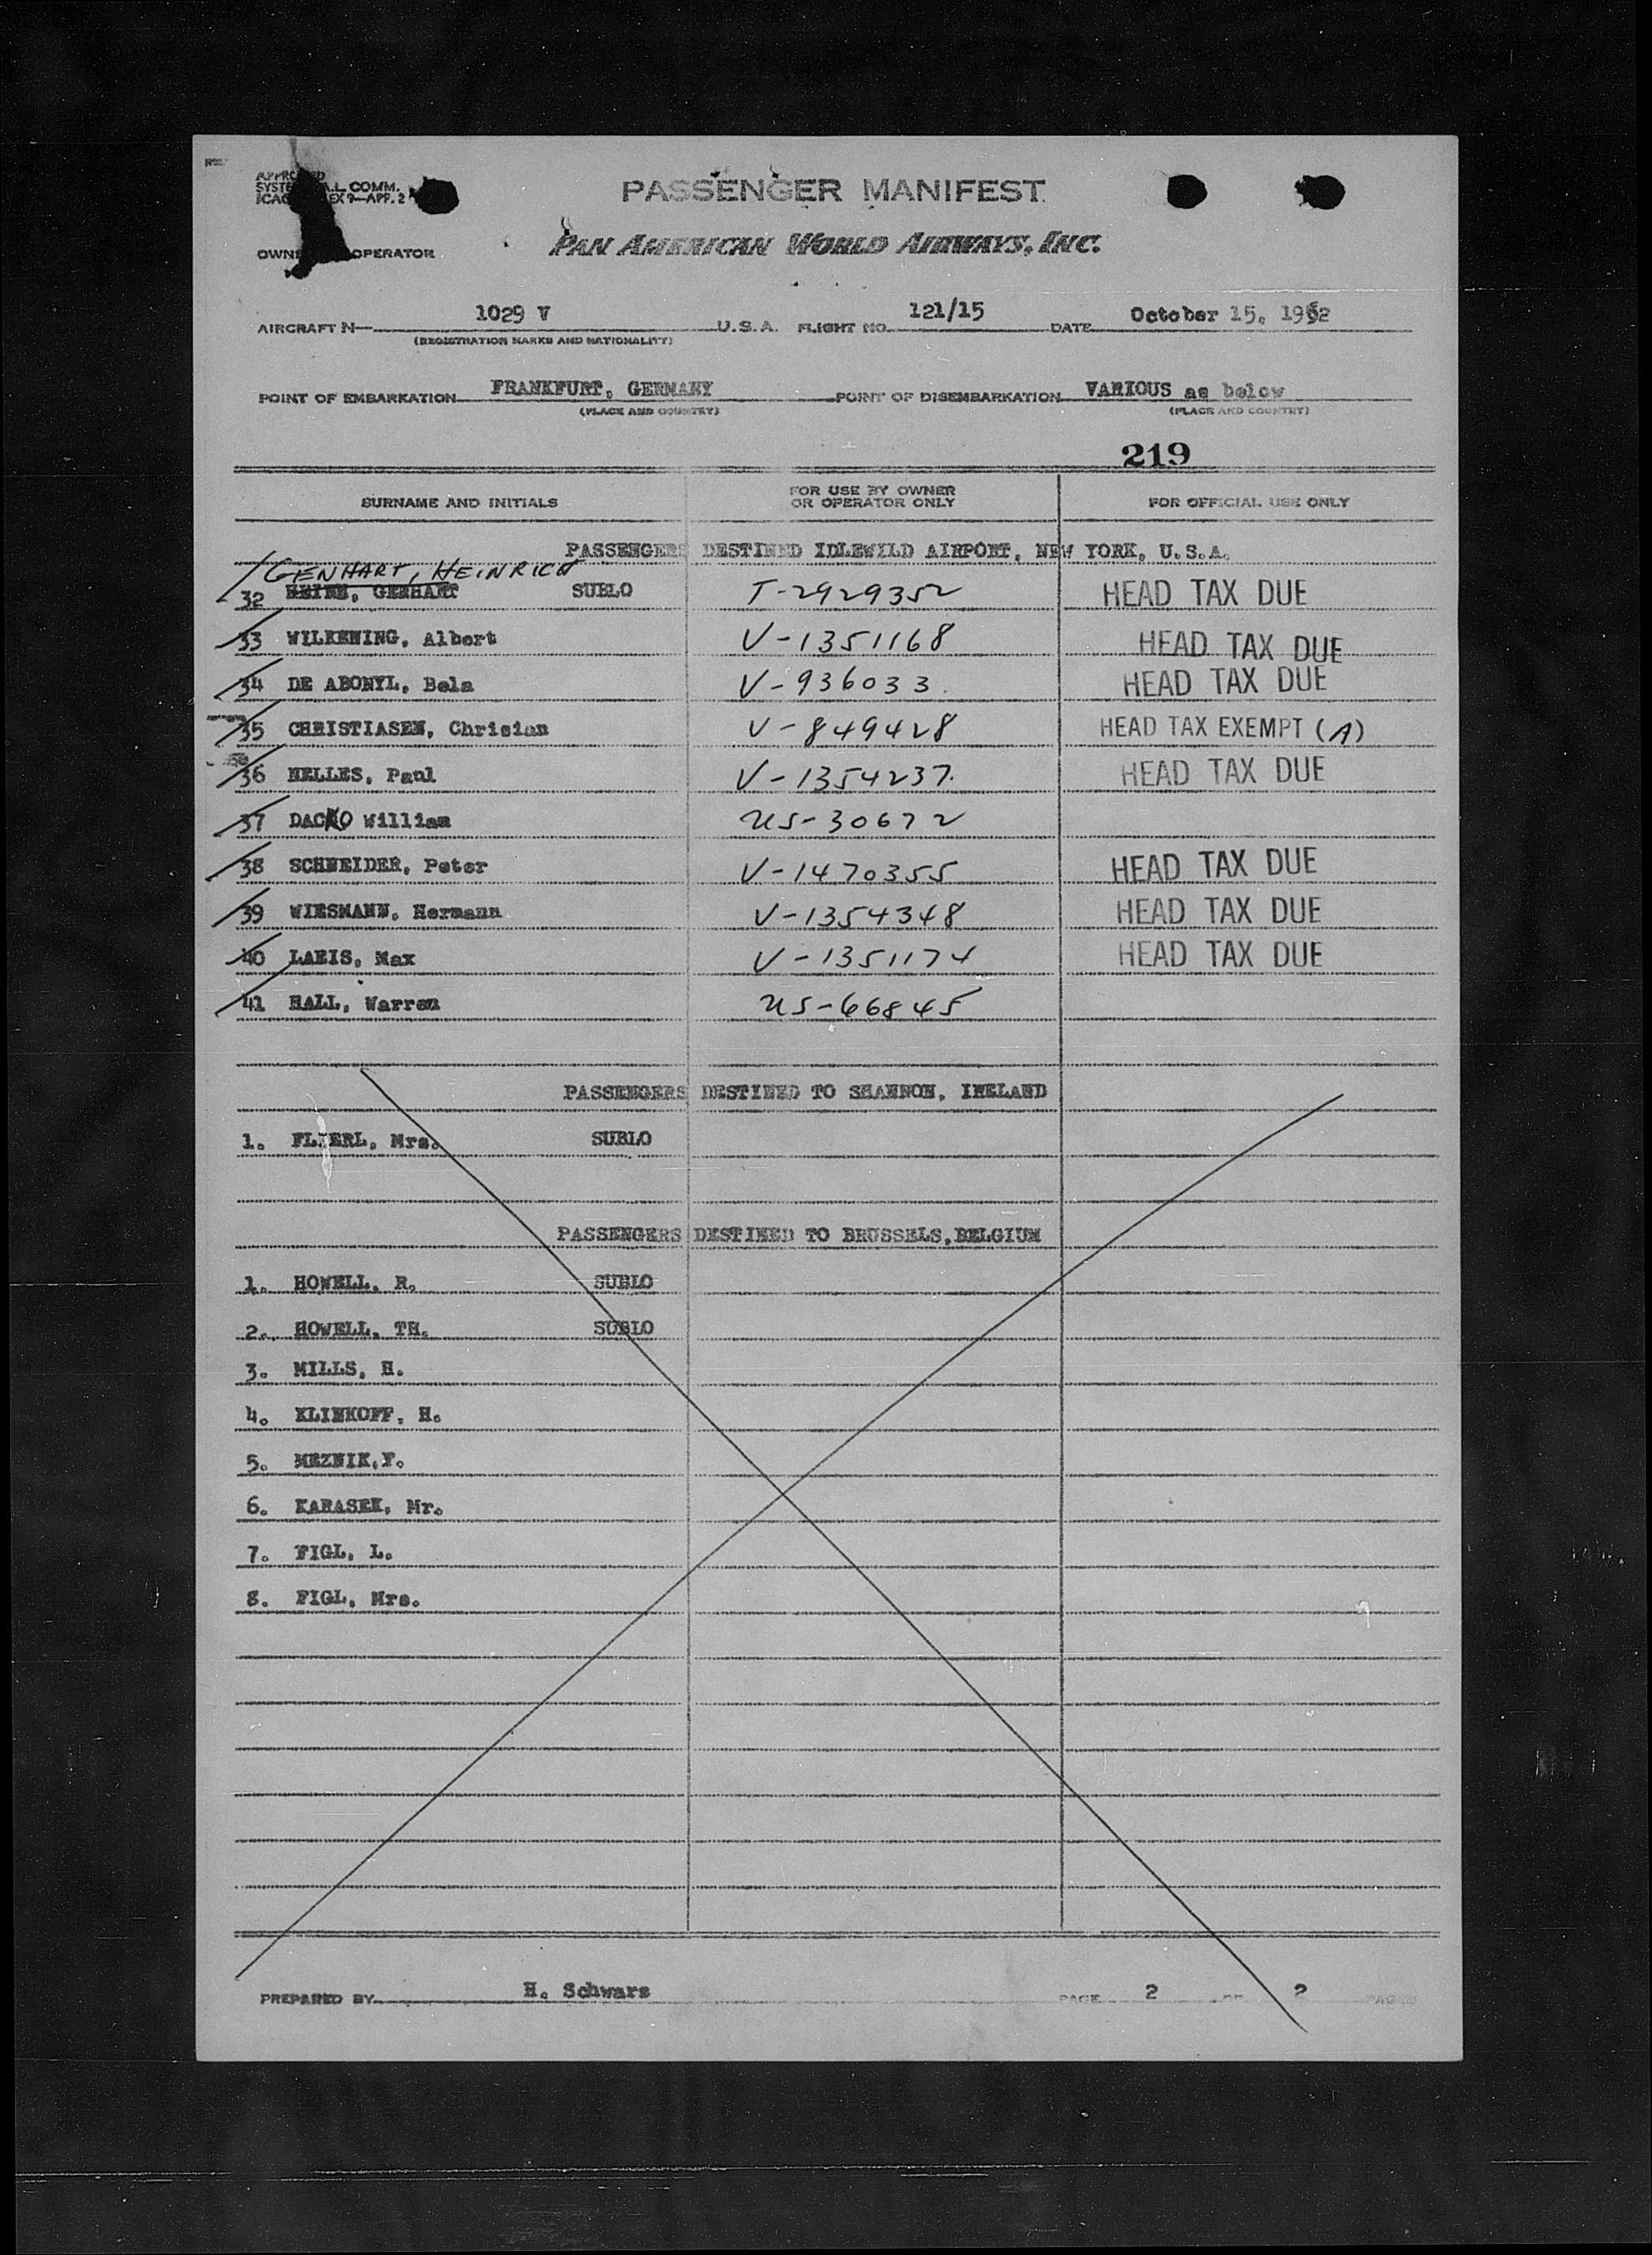 PASSENGER MANIFEST
L COMM.
EX 9—APP. 2
OPERATOR
PAN AMERICAN WORLD AIRWAYS, INC.
AIRCRAFT N— 1029 V U.S.A. FLIGHT NO. 121/15 DATE October 15, 1952
(REGISTRATION MARKS AND NATIONALITY)
POINT OF EMBARKATION FRANKFURT, GERMANY POINT OF DISEMBARKATION VARIOUS as below
(PLACE AND COUNTRY) (PLACE AND COUNTRY)
219
SURNAME AND INITIALS FOR USE BY OWNER OR OPERATOR ONLY FOR OFFICIAL USE ONLY
PASSENGERS DESTINED IDLEWILD AIRPORT, NEW YORK, U.S.A.
GENHART, HEINRICH
32 HEINR, GENHART SUBLO T-2929352 HEAD TAX DUE
33 WILKENING, Albert V-1351168 HEAD TAX DUE
34 DE ABONYL, Bela V-936033. HEAD TAX DUE
35 CHRISTIASEN, Chrisian V-849428 HEAD TAX EXEMPT (A)
36 NELLES, Paul V-1354237. HEAD TAX DUE
37 DACKO William US-30672
38 SCHNEIDER, Peter V-1470355 HEAD TAX DUE
39 WIESMANN, Hermann V-1354348 HEAD TAX DUE
40 LAEIS, Max V-1351174 HEAD TAX DUE
41 HALL, Warren US-66845
PASSENGERS DESTINED TO SHANNON, IRELAND
1. FLIERL, Mrs. SUBLO
PASSENGERS DESTINED TO BRUSSELS, BELGIUM
1. HOWELL, R. SUBLO
2. HOWELL, TH. SUBLO
3. MILLS, H.
4. KLINKOFF, H.
5. MEZNIK, F.
6. KARASEK, Mr.
7. FIGL, L.
8. FIGL, Mrs.
PREPARED BY H. Schwarz PAGE 2 OF 2 PAGES